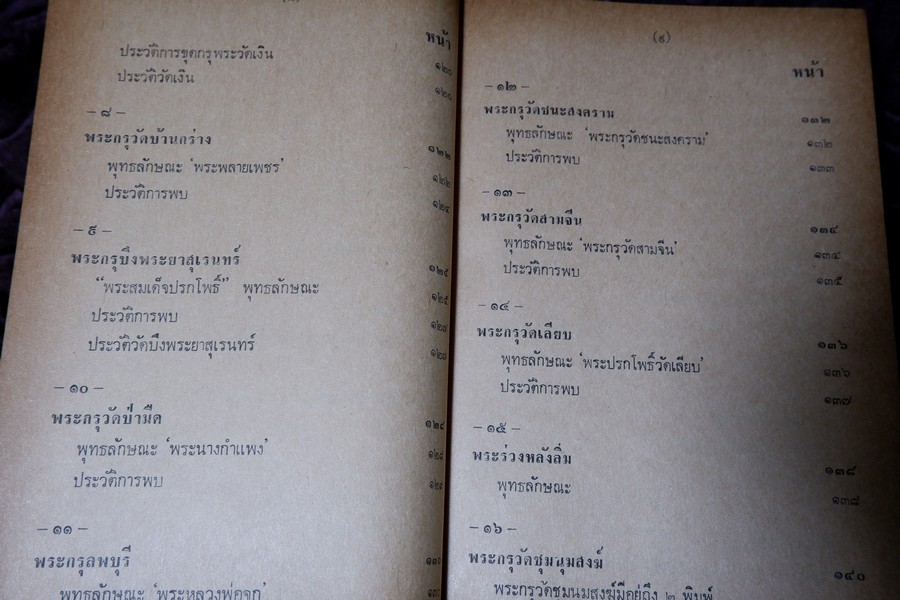 หน้า
ประวัติการขุดกรุพระวัดเงิน ๑๒๐
ประวัติวัดเงิน ๑๒๐
– ๘ –
พระกรุวัดบ้านกร่าง ๑๒๒
พุทธลักษณะ ‘พระพลายเพชร’ ๑๒๒
ประวัติการพบ ๑๒๔
– ๙ –
พระกรุบึงพระยาสุเรนทร์ ๑๒๕
“พระสมเด็จปรกโพธิ์” พุทธลักษณะ ๑๒๕
ประวัติการพบ ๑๒๗
ประวัติวัดบึงพระยาสุเรนทร์ ๑๒๗
– ๑๐ –
พระกรุวัดป่ามืด ๑๒๘
พุทธลักษณะ ‘พระนางกำแพง’ ๑๒๘
ประวัติการพบ ๑๒๙
– ๑๑ –
พระกรุลพบุรี ๑๓๐
พุทธลักษณะ ‘พระหลวงพ่อจุก’
(๙)
หน้า
– ๑๒ –
พระกรุวัดชนะสงคราม ๑๓๒
พุทธลักษณะ ‘พระกรุวัดชนะสงคราม’ ๑๓๒
ประวัติการพบ ๑๓๓
– ๑๓ –
พระกรุวัดสามจีน ๑๓๔
พุทธลักษณะ ‘พระกรุวัดสามจีน’ ๑๓๔
ประวัติการพบ ๑๓๕
– ๑๔ –
พระกรุวัดเลียบ ๑๓๖
พุทธลักษณะ ‘พระปรกโพธิ์วัดเลียบ’ ๑๓๖
ประวัติการพบ ๑๓๗
– ๑๕ –
พระร่วงหลังลิ่ม ๑๓๘
พุทธลักษณะ ๑๓๘
– ๑๖ –
พระกรุวัดชุมนุมสงฆ์ ๑๔๐
พระกรุวัดชุมนุมสงฆ์มีอยู่ถึง ๒ พิมพ์